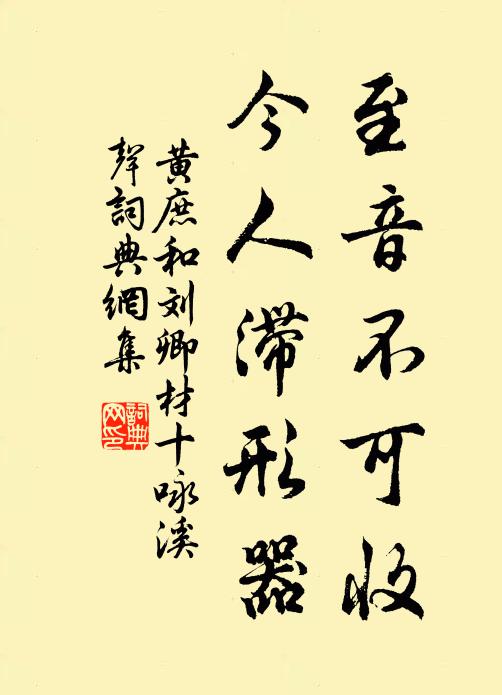 至音不可收
今人滞形器
黄庶和刘卿材十咏溪
聲詞典網集
詞典网印